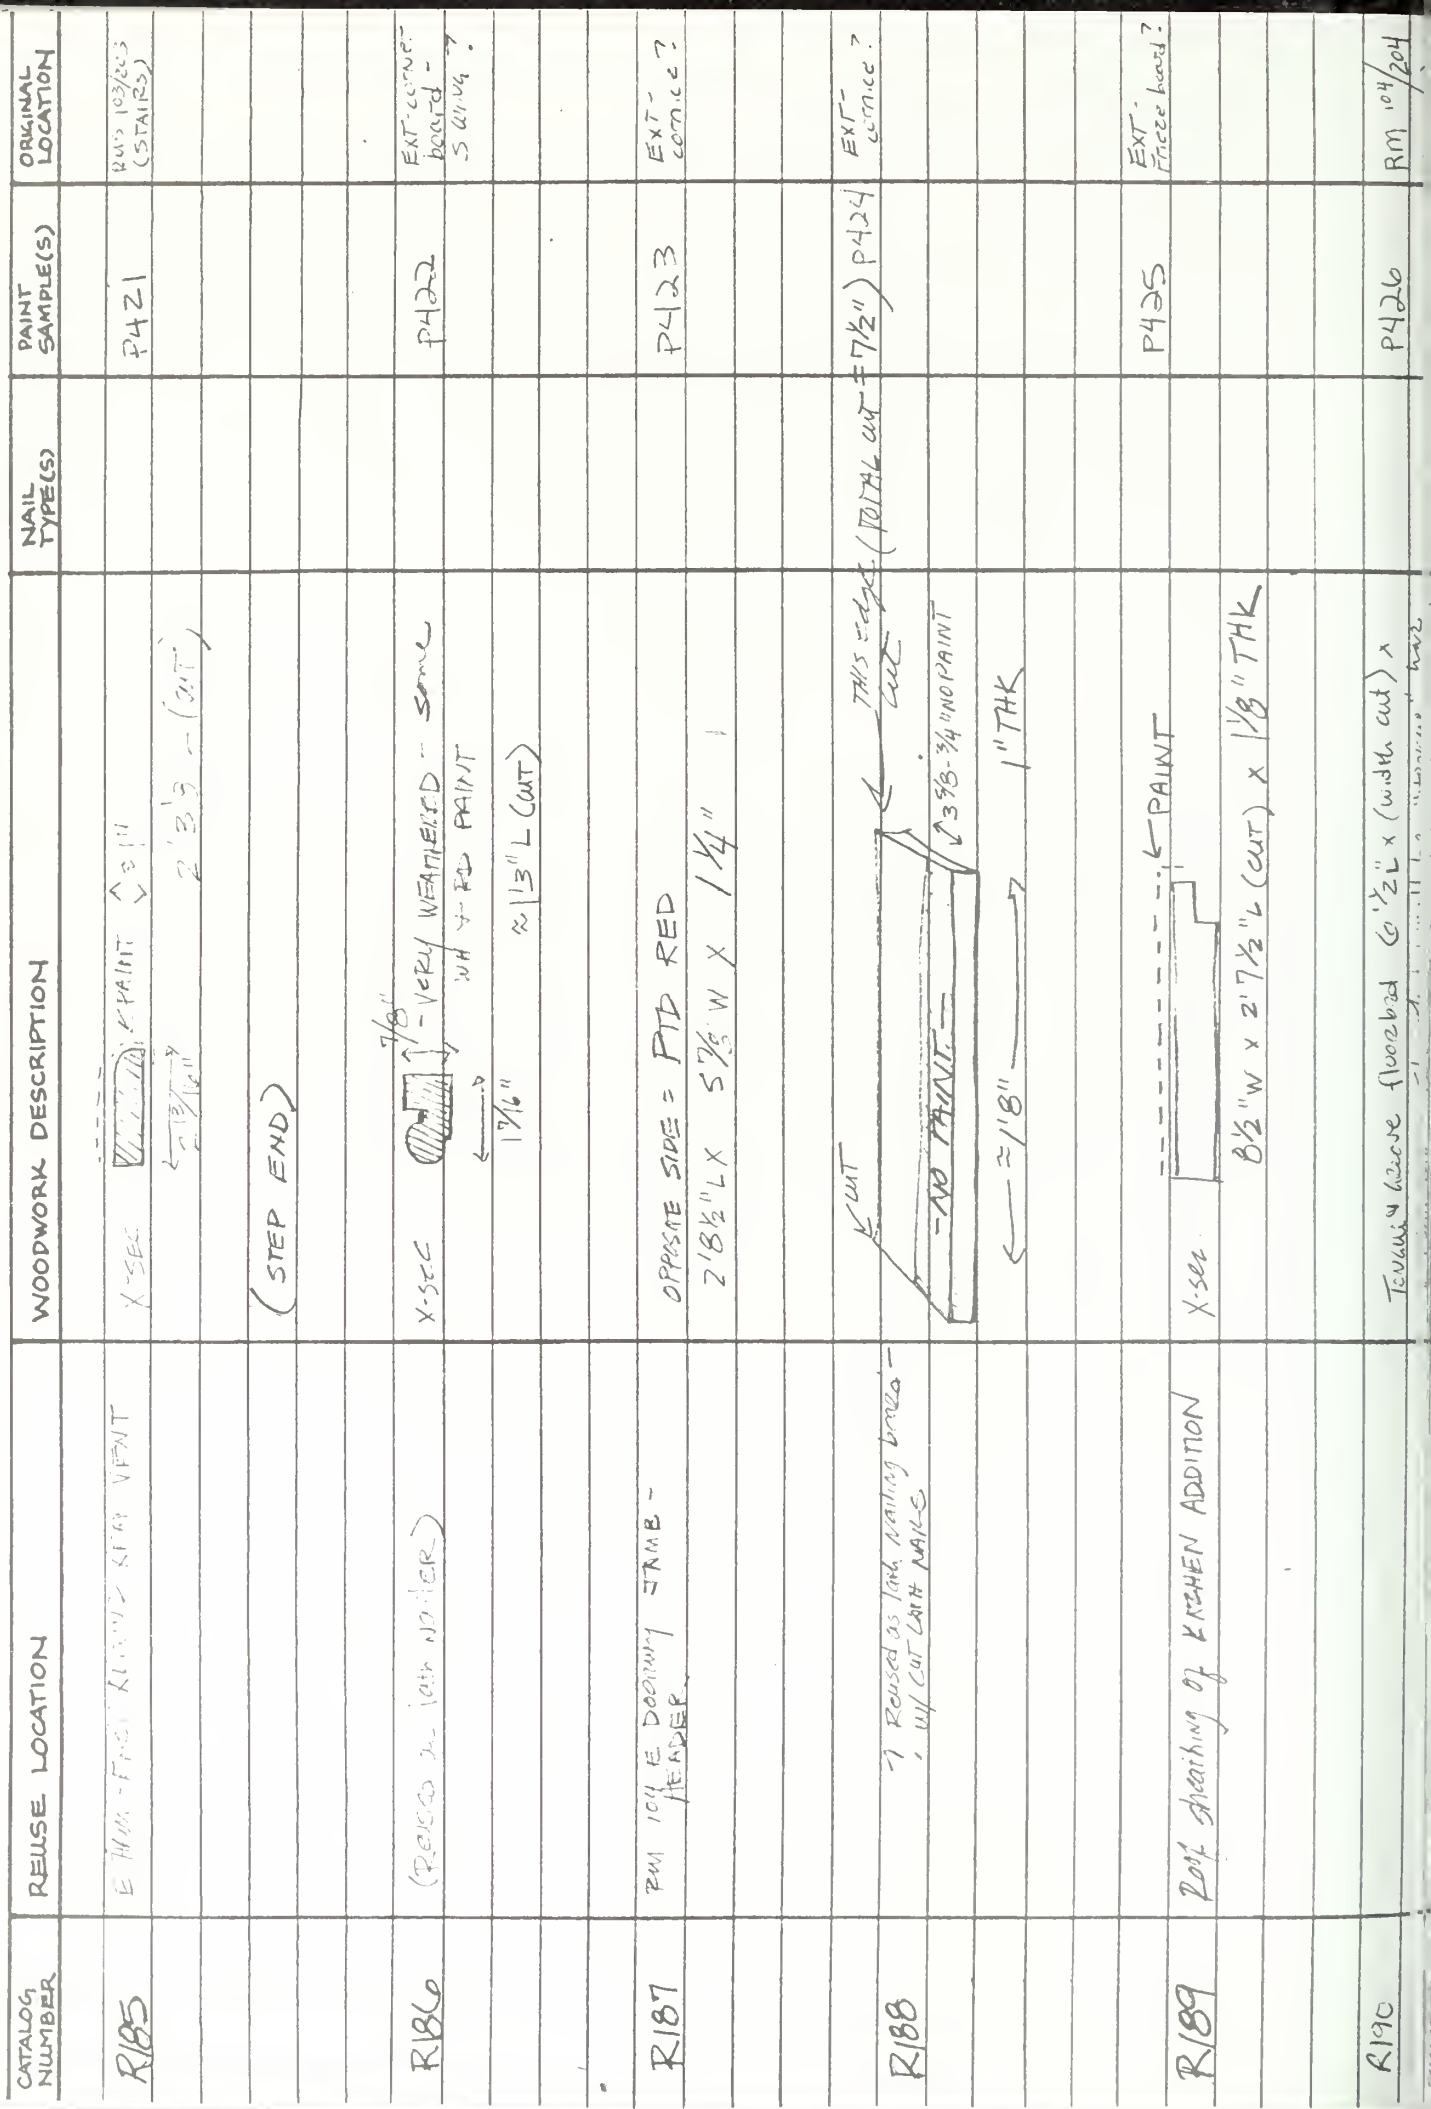 CATALOG NUMBER
REUSE LOCATION
WOODWORK DESCRIPTION
NAIL TYPE(S)
PAINT SAMPLE(S)
ORIGINAL LOCATION
R185
VENT
X-SEC
PAINT
1 3/16"
2'3"
(CUT)
(STEP END)
P421
RMS 103/203
(STAIRS)
R186
X-SEC
7/8"
- VERY WEATHERED - some
WH + RD PAINT
1 7/16"
≈ 1'3" L (CUT)
P422
EXT - corner
board -
S wing?
R187
RM 104 E DOORWAY JAMB -
HEADER
OPPOSITE SIDE = PTD RED
2'8½" L X 5⅞" W X 1¼"
P423
EXT -
cornice?
R188
? Reused as lath nailing
w/ CUT LATH NAILS
CUT
THIS edge (TOTAL CUT = 7½")
cut
- NO PAINT -
3⅝-¾" NO PAINT
≈ 1'8"
1" THK
P424
EXT -
cornice?
R189
Roof sheathing of KITCHEN ADDITION
X-sec.
PAINT
8½" W x 2'7½" L (CUT) x 1⅛" THK
P425
EXT -
Frieze board?
R190
floorbrd
(width cut) x
P426
RM 104/204